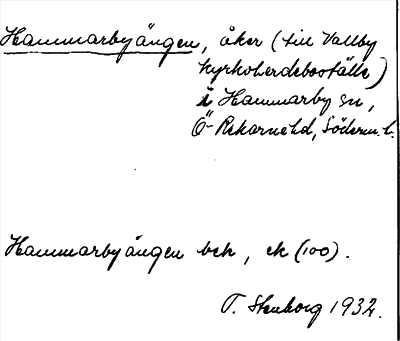 Hammarbyängen, åker (till Vallby
kyrkoherdeboställe)
i Hammarby sn,
Ö-Rekarne hd, Söderm. l.
Hammarbyängen beh, ek (100).
T. Stenborg 1932.